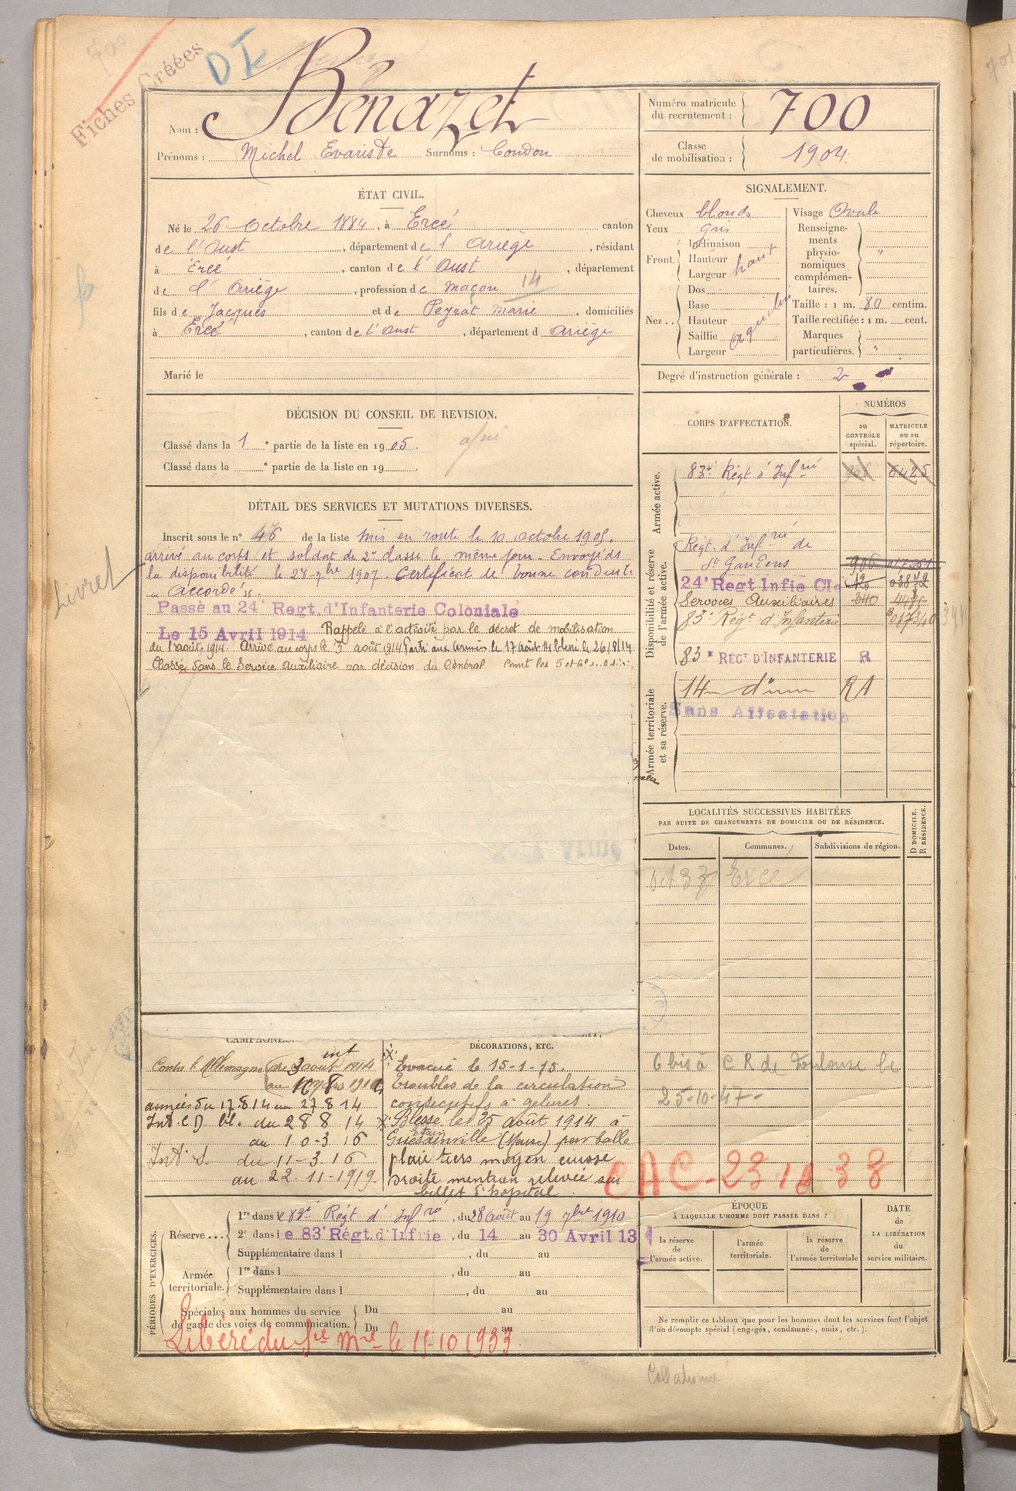 Fiches Créées
Nom : Bénazet
Prénoms : Michel Evariste Surnoms : Coudou
Numéro matricule du recrutement : 700
Classe de mobilisation : 1904
ÉTAT CIVIL.
Né le 26 Octobre 1884, à Ercé canton
de l'Oust, département de l'Ariège, résidant
à Ercé, canton de l'Oust, département
de l'Ariège, profession de maçon 14
fils de Jacques et de Peyrat Marie, domiciliés
à Ercé, canton de l'Oust, département d Ariège
Marié le
SIGNALEMENT.
Cheveux blonds
Yeux gris
Front. Inclinaison
Hauteur
Largeur
haut
Nez.. Dos
Base
Hauteur
Saillie
Largeur
Visage Ovale
Renseignements physionomiques complémentaires. "
Taille : 1 m. 80 centim.
Taille rectifiée : 1 m. cent.
Marques particulières. "
Degré d'instruction générale : 2
DÉCISION DU CONSEIL DE REVISION.
Classé dans la 1e partie de la liste en 1905.
Classé dans la e partie de la liste en 19
DÉTAIL DES SERVICES ET MUTATIONS DIVERSES.
Inscrit sous le n° 46 de la liste Mis en route le 10 octobre 1905,
arrivé au corps et soldat de 2e classe le même jour. Envoyé ds
la disponibilité le 28 7bre 1907. Certificat de bonne conduite
"Accordé".
Livret
Passé au 24e Regt. d'Infanterie Coloniale
Le 15 Avril 1914 Rappelé à l'activité par le décret de mobilisation
du 1 août 1914. Arrivé au corps le 3 août 1914. Parti aux armées le 17 août 14 blessé le 26/8/14
Classé dans le Service Auxiliaire par décision du Général Comt les
CORPS D'AFFECTATION.
NUMÉROS
au CONTRÔLE spécial.
MATRICULE ou au répertoire.
Armée active.
83e Régt d'Infrie
Disponibilité et réserve de l'armée active.
Régt. d'Infrie de
St Gaudens
24e Regt Infie Cle
Services Auxiliaires
83e Régt d'Infanterie
83e REGT D'INFANTERIE R
Armée territoriale et sa réserve.
Sans Affectation
LOCALITÉS SUCCESSIVES HABITÉES
PAR SUITE DE CHANGEMENTS DE DOMICILE OU DE RÉSIDENCE.
Dates. Communes. Subdivisions de région. D DOMICILE, R RÉSIDENCE.
Oct 37 Ercé
6 bis à C R de Toulouse le
25-10-47
CAC-23 38
CAMPAGNES.
Contre l'Allemagne du 3 août 1914
armées du 17.8.14 au 27.8.14
Int. C.D bl. du 28 8 14
au 10-3 16
Int. S. du 11-3-16
au 22-11-1919.
DÉCORATIONS, ETC.
Evacué le 15-1-15.
Troubles de la circulation
consécutifs à gelures.
Blessé le 25 août 1914 à
(Meuse) par balle
plaie tiers moyen cuisse
droite mention relevée sur
billet d'hôpital
PÉRIODES D'EXERCICES.
Réserve... 1re dans le 83e Régt d'Infrie, du 28 août au 19 7bre 1910
2e dans le 83e Régt. d'Infrie, du 14 au 30 Avril 13
Supplémentaire dans l , du au
Armée territoriale. 1re dans l , du au
Supplémentaire dans l , du au
Spéciales aux hommes du service de garde des voies de communication. Du au
Du au
Libéré du Sce Mre le 15-10 1933
ÉPOQUE
À LAQUELLE L'HOMME DOIT PASSER DANS :
la réserve de l'armée active.
l'armée territoriale.
la réserve de l'armée territoriale
DATE de LA LIBÉRATION du service militaire.
Ne remplir ce tableau que pour les hommes dont les services font l'objet
d'un décompte spécial (engagés, condamnés, omis, etc.).
Collationné